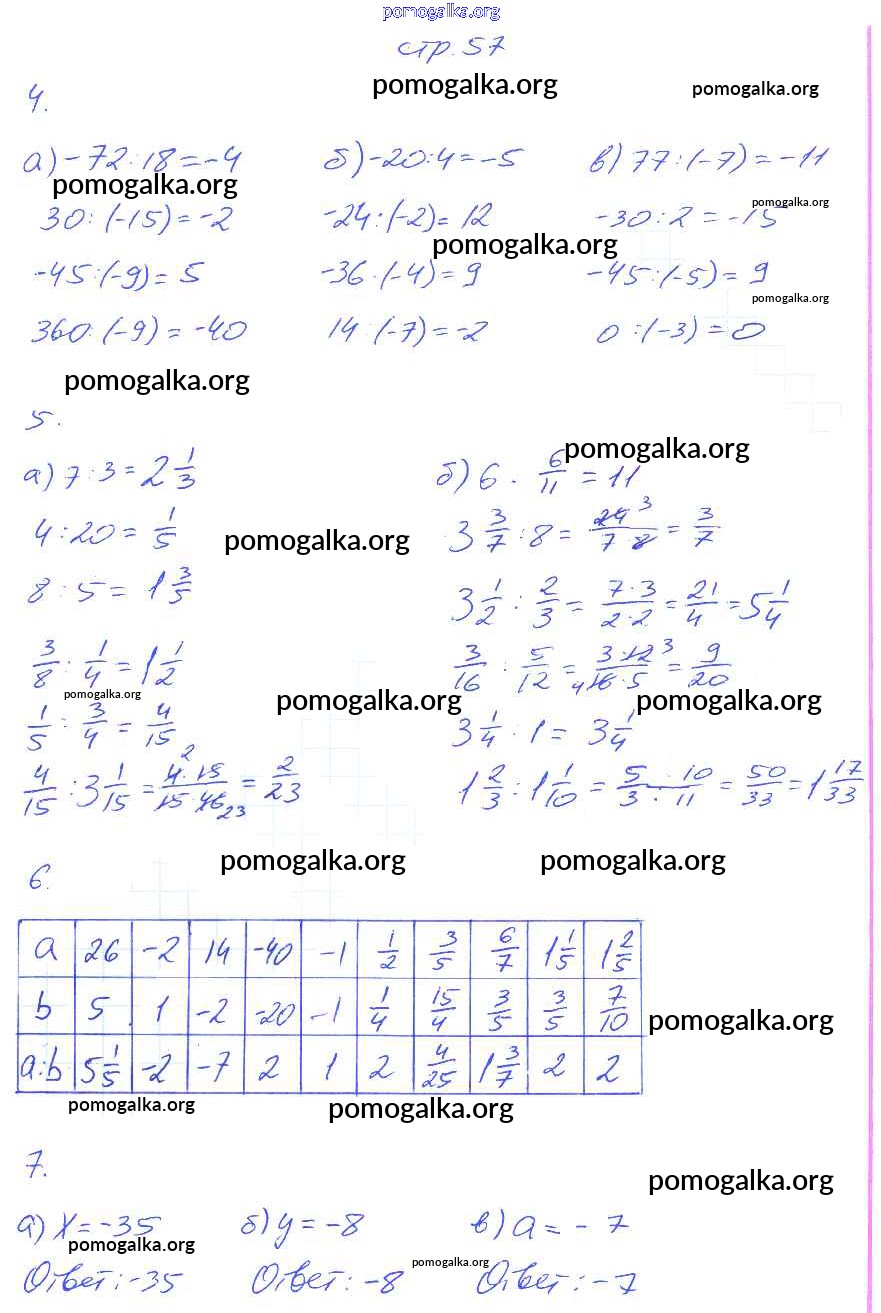 pomogalka.org
стр. 57
pomogalka.org pomogalka.org
4.
а) -72:18=-4 б) -20:4=-5 в) 77:(-7)=-11
pomogalka.org pomogalka.org
30:(-15)=-2 -24:(-2)=12 -30:2=-15
pomogalka.org
-45:(-9)=5 -36:(-4)=9 -45:(-5)=9
pomogalka.org
360:(-9)=-40 14:(-7)=-2 0:(-3)=0
pomogalka.org
5.
pomogalka.org
а) 7:3=2 1/3 б) 6 : 6/11 = 11
4:20= 1/5 3 3/7 :8= 24 3/7·8 = 3/7
pomogalka.org
8:5= 1 3/5 3 1/2 : 2/3 = 7·3/2·2 = 21/4 = 5 1/4
3/8 : 1/4 = 1 1/2 3/16 : 5/12 = 3·12 3/4 16·5 = 9/20
pomogalka.org pomogalka.org pomogalka.org
1/5 : 3/4 = 4/15 3 1/4 : 1= 3 1/4
4/15 : 3 1/15 = 4·15 2/15·46 23 = 2/23 1 2/3 : 1 1/10 = 5·10/3·11 = 50/33 = 1 17/33
pomogalka.org pomogalka.org
6.
a 26 -2 14 -40 -1 1/2 3/5 6/7 1 1/5 1 2/5
b 5 1 -2 -20 -1 1/4 15/4 3/5 3/5 7/10
pomogalka.org
a:b 5 1/5 -2 -7 2 1 2 4/25 1 3/7 2 2
pomogalka.org pomogalka.org
7.
pomogalka.org
а) x=-35 б) y=-8 в) a=-7
pomogalka.org pomogalka.org
Ответ:-35 Ответ:-8 Ответ:-7